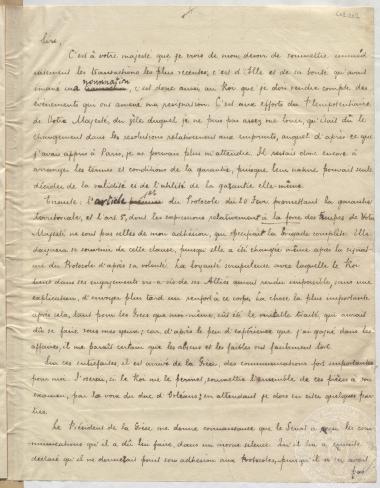 Sire,
C'est à votre majesté que je crois de mon devoir de soumettre immédi
atement les transactions les plus récentes, c'est d'Elle et de sa bonté qu'avait
émané ma nomination, c'est donc aussi au Roi que je dois rendre compte des
événements qui ont amené ma résignation. C'est aux efforts du Plénipotentiaire
de Votre Majesté, du zèle duquel je ne puis pas assez me louer, qu'était dû le
changement dans les résolutions relativement aux emprunts, auquel d'après ce que
j'avais appris à Paris, je ne pouvais plus m'attendre. Il restait donc encore à
arranger les termes et conditions de la garantie, puisque leur nature pouvait seule
décider de la validité et de l'utilité de la garantie elle-même.
Ensuite: l'article du Protocole du 20 Févr. promettant la garantie
territoriale, et l'art 5, dont les expressions relativement à la force des troupes de Votre
Majesté ne sont pas celles de mon adhésion, qui spécifiait la brigade complète. Elle
daignera se souvenir de cette clause, puisqu'elle a été changée même après la signat-
ure du Protocole d'après sa volonté. La loyauté scrupuleuse avec laquelle le Roi
dans ses engagements vis-à-vis de ses Alliés aurait rendu impossible, sans une
explication, d'envoyer plus tard un renfort à ce corps. La chose la plus importante
après cela, tant pour les Grecs que moi-même, eût été le véritable traité, qui aurait
dû se faire sous mes yeux; car d'après le peu d'expérience que j'ai gagné dans les
affaires, il me paraît certain que les absents et les faibles ont facilement tort.
Sur ces entrefaites, il est arrivé de la Grèce, des communications fort importantes
pour moi. J'oserai, si le Roi me le permet, soumettre l'ensemble de ces pièces à son
examen, par la voie du duc d'Orléans; en attendant je dois en citer quelques par-
ties.
Le Président de la Grèce, me donne connaissance que le Sénat a reçu les com
munications qu'il a dû lui faire, dans un morne silence. Qu'il lui a ensuite
déclaré qu'il ne donnerait point son adhésion aux Protocoles, puisqu'il n'en avait
pas